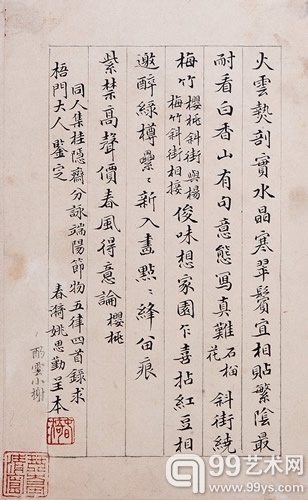 火雲勢剖實水晶寒翠鬢宜相貼繁陰最
耐看白香山有句意態寫真難石榴花斜街繞
梅竹櫻桃斜街與楊梅竹斜街相接俊味想家園乍喜拈紅豆相
邀醉綠樽纍〻新入畫點〻絳留痕
紫禁高聲價春風得意論櫻桃
同人集桂隱齋分詠端陽節物五律四首錄求
梧門大人鑒定
春漪姚思勤呈本
酌雲小榭
99艺术网
www.99ys.com